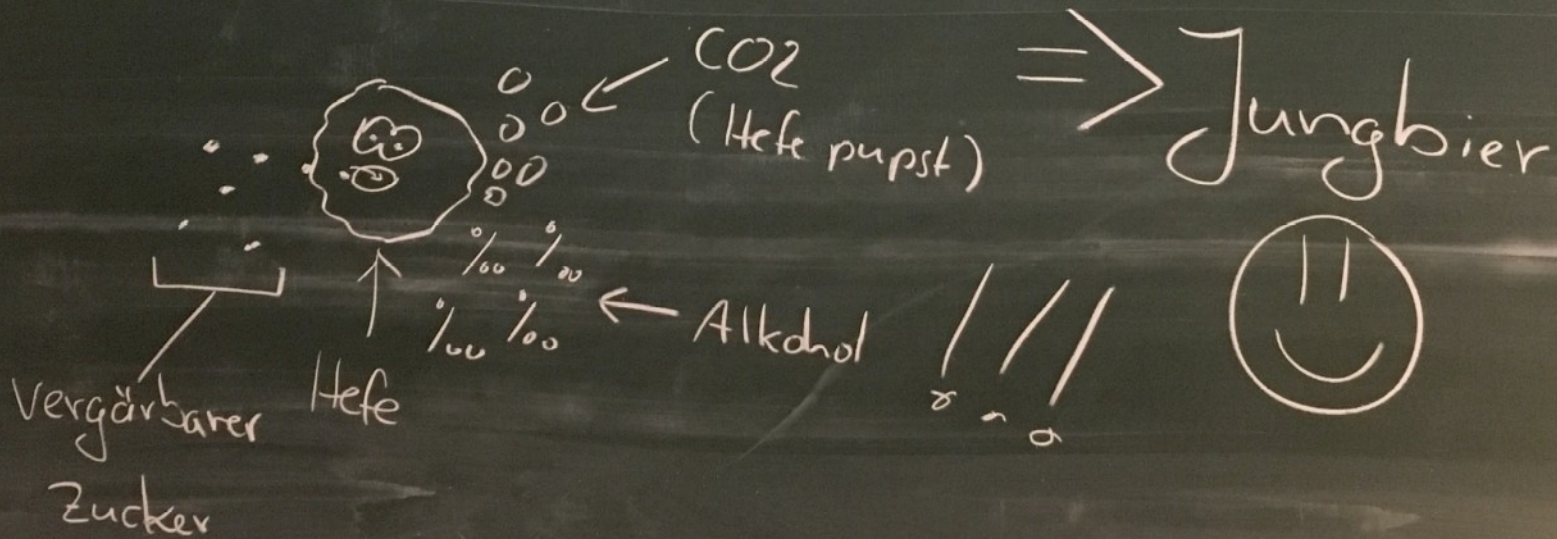 CO2
(Hefe pupst)
=> Jungbier
‰ ‰
‰ ‰
Alkohol !!!
Hefe
Vergärbarer
Zucker